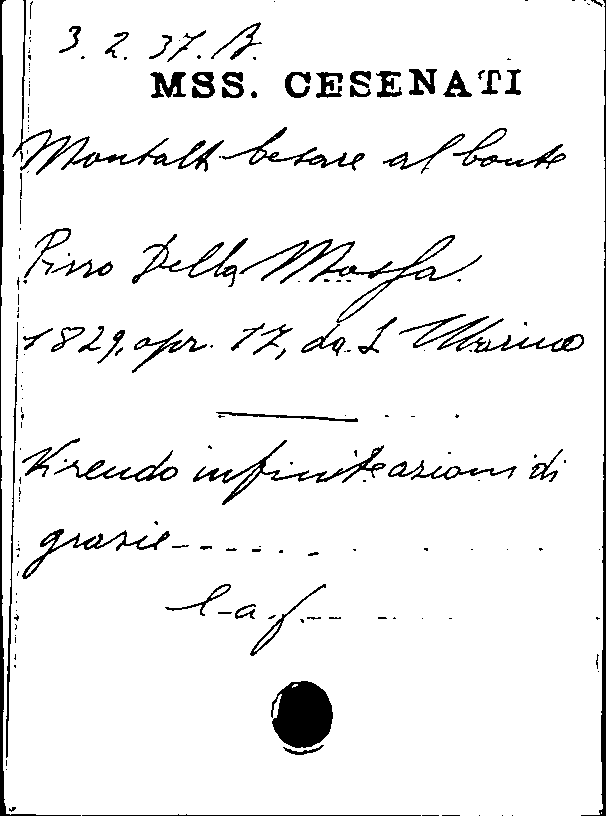 3. 2. 37. B.
MSS. CESENATI
Montalti Cesare al conte
Pirro Della Massa.
1829, apr. 17, da S. Marino
Vi rendo infinite azioni di
grazie
l. a. f.